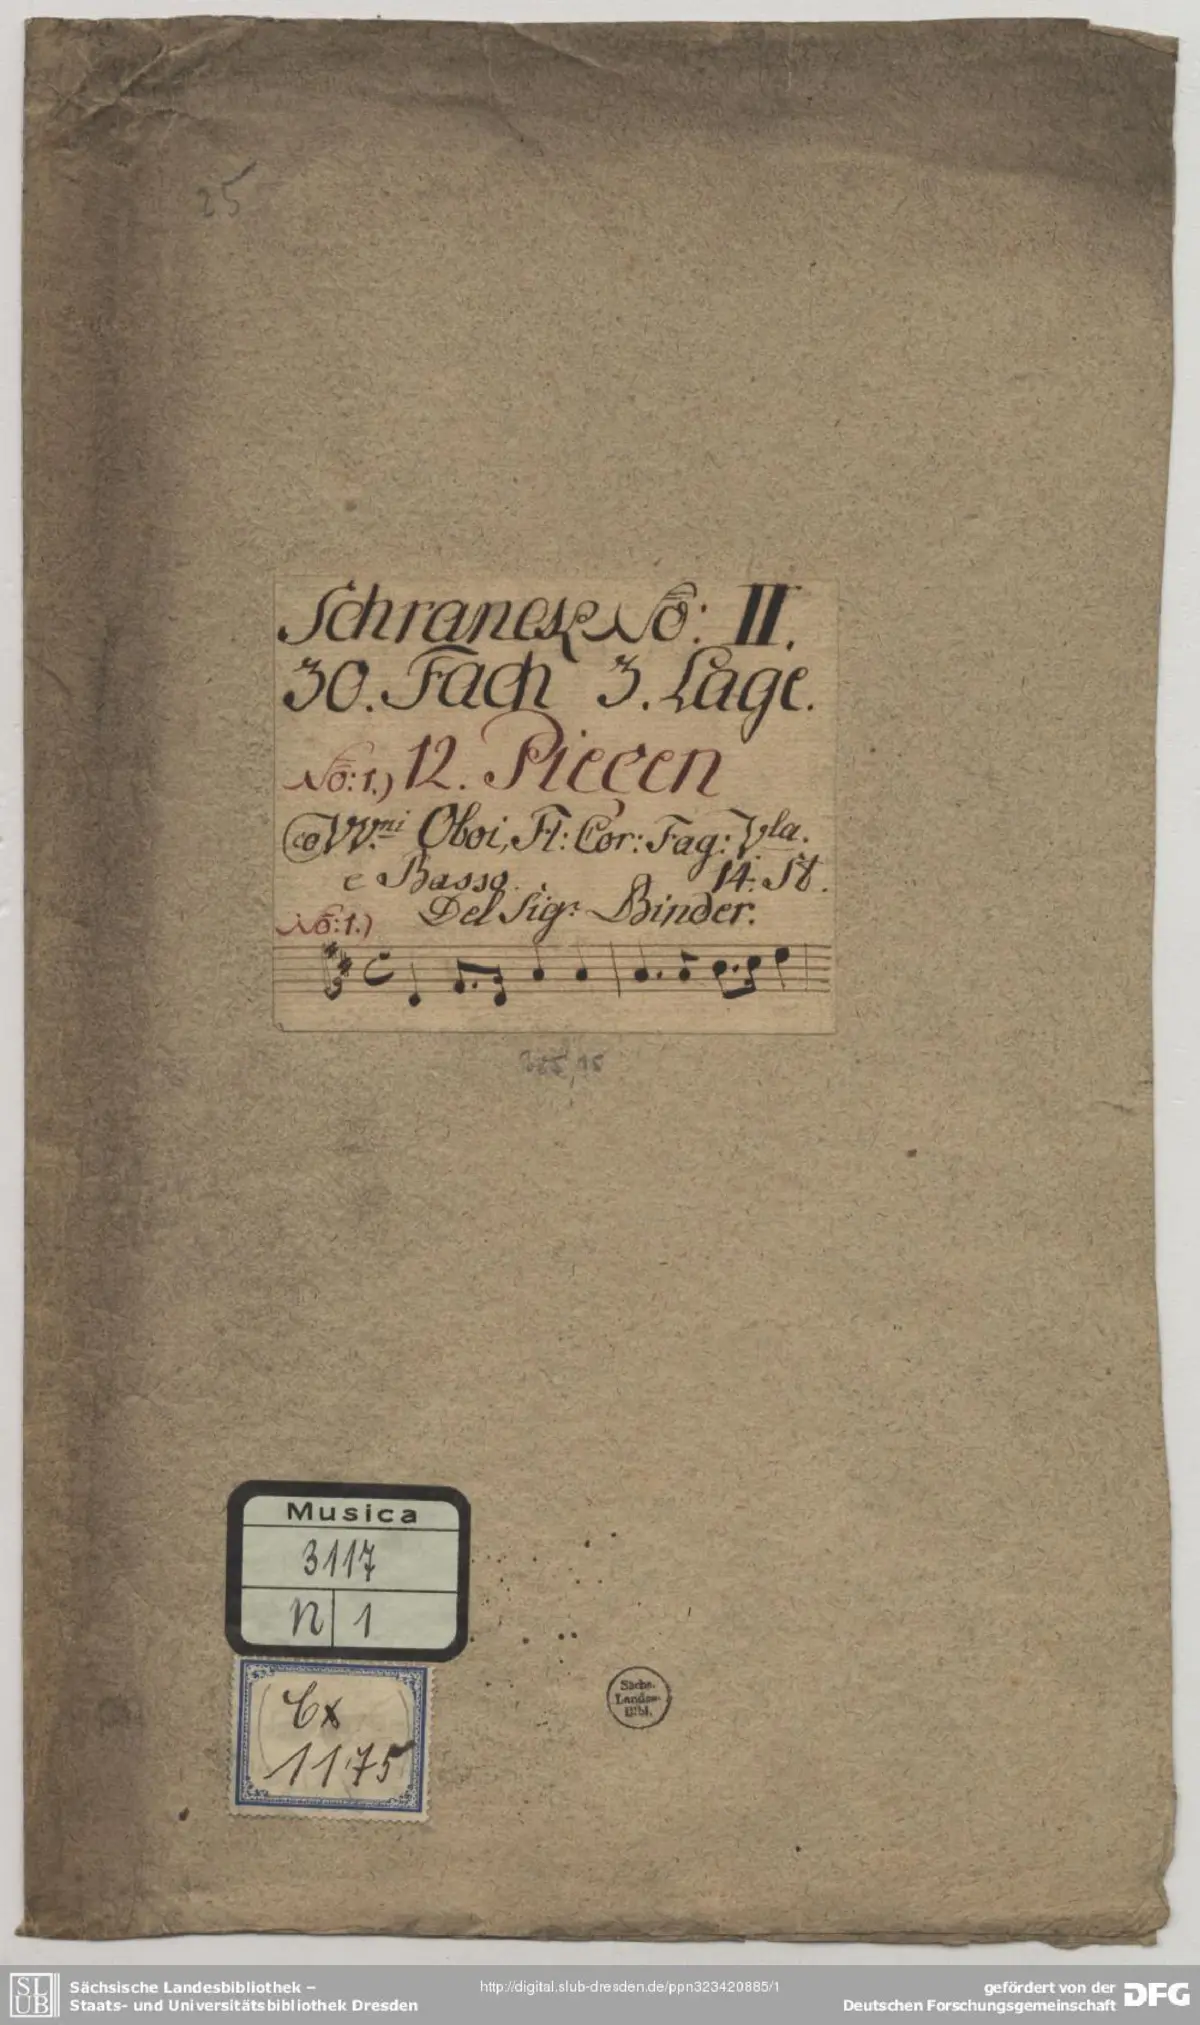 25
Schranck No: II.
30. Fach 3. Lage.
No: 1.) 12. Piecen
co VV.ni Oboi, Fl: Cor: Fag: Vla.
e Basso. 14. St.
Del Sigr: Binder.
No: 1.)
Musica
3117
n 1
Cx
1175
Sächs.
Landes-
Bibl.
SLUB
Sächsische Landesbibliothek –
Staats- und Universitätsbibliothek Dresden
http://digital.slub-dresden.de/ppn323420885/1
gefördert von der
Deutschen Forschungsgemeinschaft
DFG